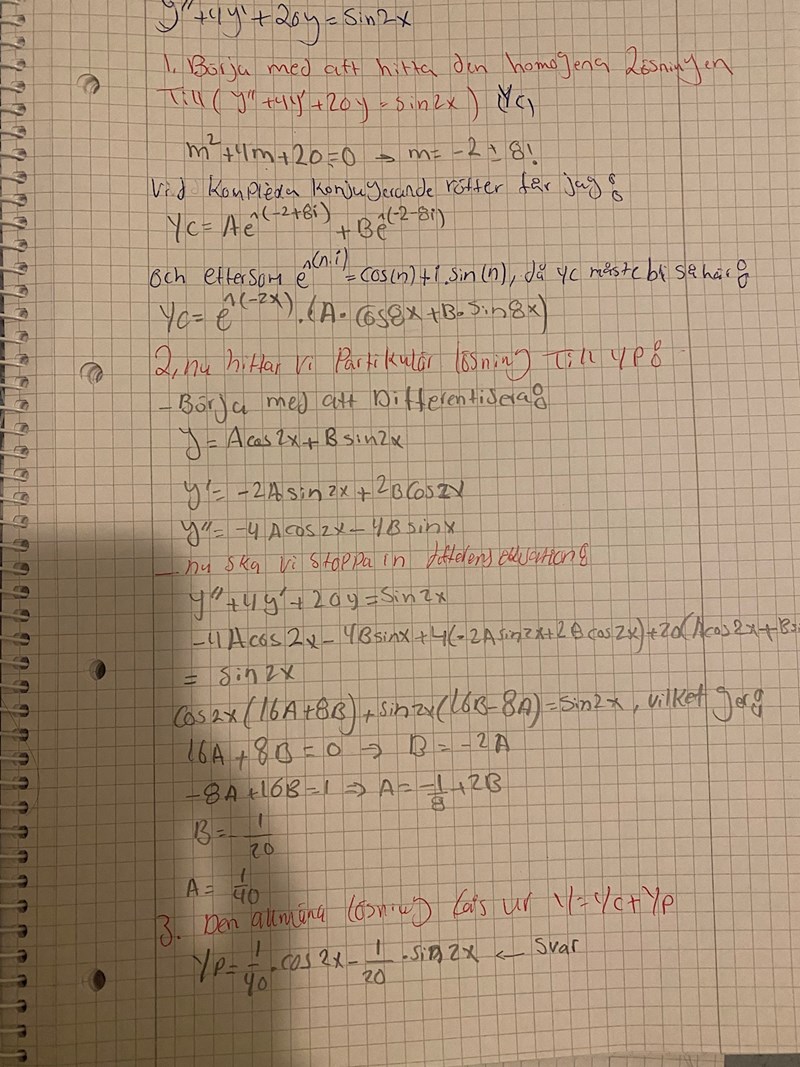 y"+4y'+20y=sin2x
1. Börja med att hitta den homogena Lösningen
Till (y"+4y'+20y=sin2x) (Yc)
m²+4m+20=0 → m=-2±8i
Vid Komplexa Konjugerande rötter får jag:
Yc=Ae^(-2+8i)+Be^(-2-8i)
Och eftersom e^(n.i)=cos(n)+i.sin(n), då yc måste bli såhär:
Yc=e^(-2x).(A.cos8x+B.sin8x)
2, nu hittar vi Partikulär lösning Till yp:
-Börja med att Differentisera:
y=Acos2x+Bsin2x
y'=-2Asin2x+2Bcos2x
y"=-4Acos2x-4Bsinx
-nu ska vi stoppa in
y"+4y'+20y=sin2x
-4Acos2x-4Bsinx+4(-2Asin2x+2Bcos2x)+20(Acos2x+Bsi
=sin2x
cos2x(16A+8B)+sin2x(16B-8A)=sin2x, vilket ger:
16A+8B=0 ⇒ B=-2A
-8A+16B=1 ⇒ A=-1/8+2B
B=-1/20
A=1/40
3. Den allmäna lösning fås ur Y=Yc+Yp
Yp=1/40.cos2x-1/20.sin2x ← Svar